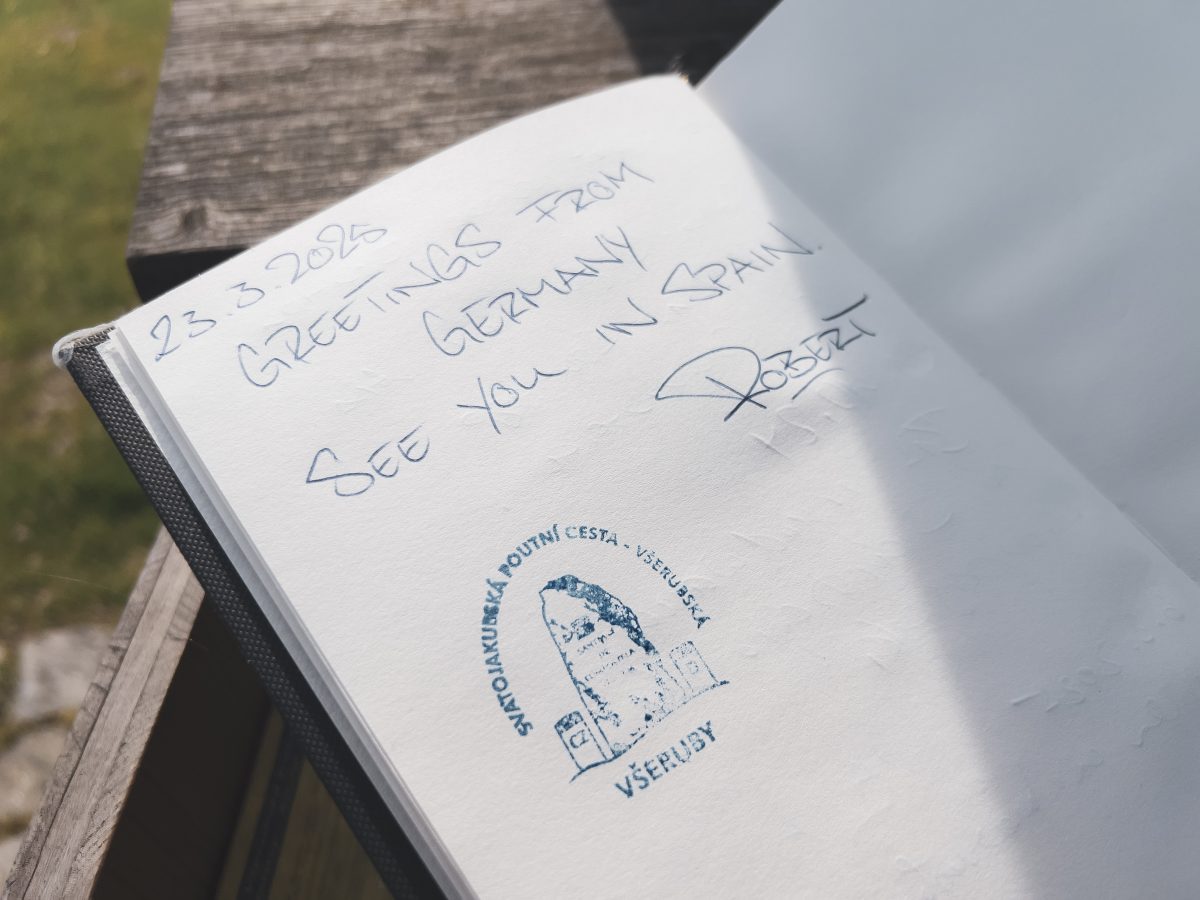 23.3.2025
GREETINGS FROM
GERMANY
SEE YOU IN SPAIN.
ROBERT
SVATOJAKUBSKÁ POUTNÍ CESTA - VŠERUBSKÁ
CZ
D
VŠERUBY